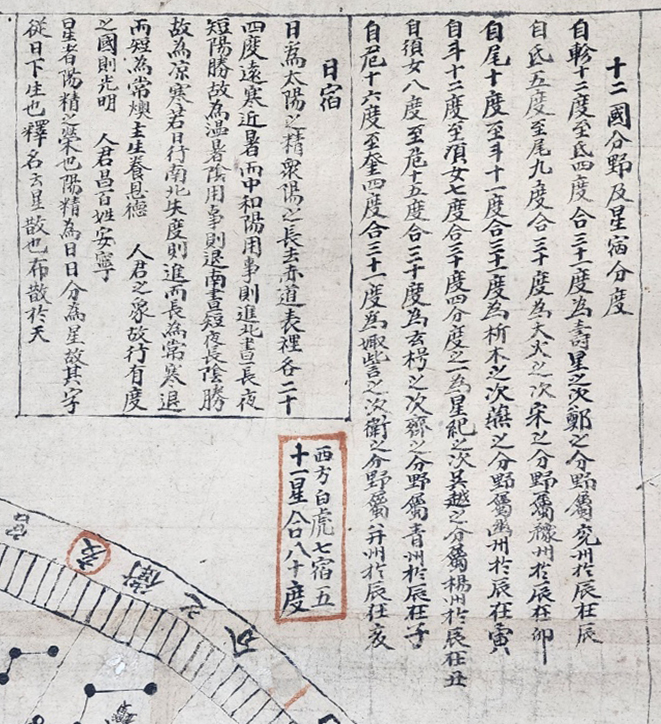 十二國分野及星宿分度
自軫十二度至氐四度合三十一度為壽星之次鄭之分野屬兖州於辰在辰
自氐五度至尾九度合三十度為大火之次宋之分野屬豫州於辰在卯
自尾十度至斗十一度合三十一度為析木之次燕之分野屬幽州於辰在寅
自斗十二度至須女七度合三十度四分度之一為星紀之次吳越之分屬楊州於辰在丑
自須女八度至危十五度合三十度為玄枵之次齊之分野屬青州於辰在子
自危十六度至奎四度合三十一度為娵訾之次衛之分野屬并州於辰在亥
日宿
日為太陽之精衆陽之長去赤道表裡各二十
四度遠寒近暑而中和陽用事則進北晝長夜
短陽勝故為溫暑陰用事則退南晝短夜長陰勝
故為凉寒若日行南北失度則進而長為常寒退
而短為常燠主生養恩德 人君之象故行有度
之國則光明 人君昌百姓安寧
星者陽精之榮也陽精為日日分為星故其字
從日下生也釋名云星散也布散於天
西方白虎七宿五
十一星合八十度
宮
亥
衛
之
分